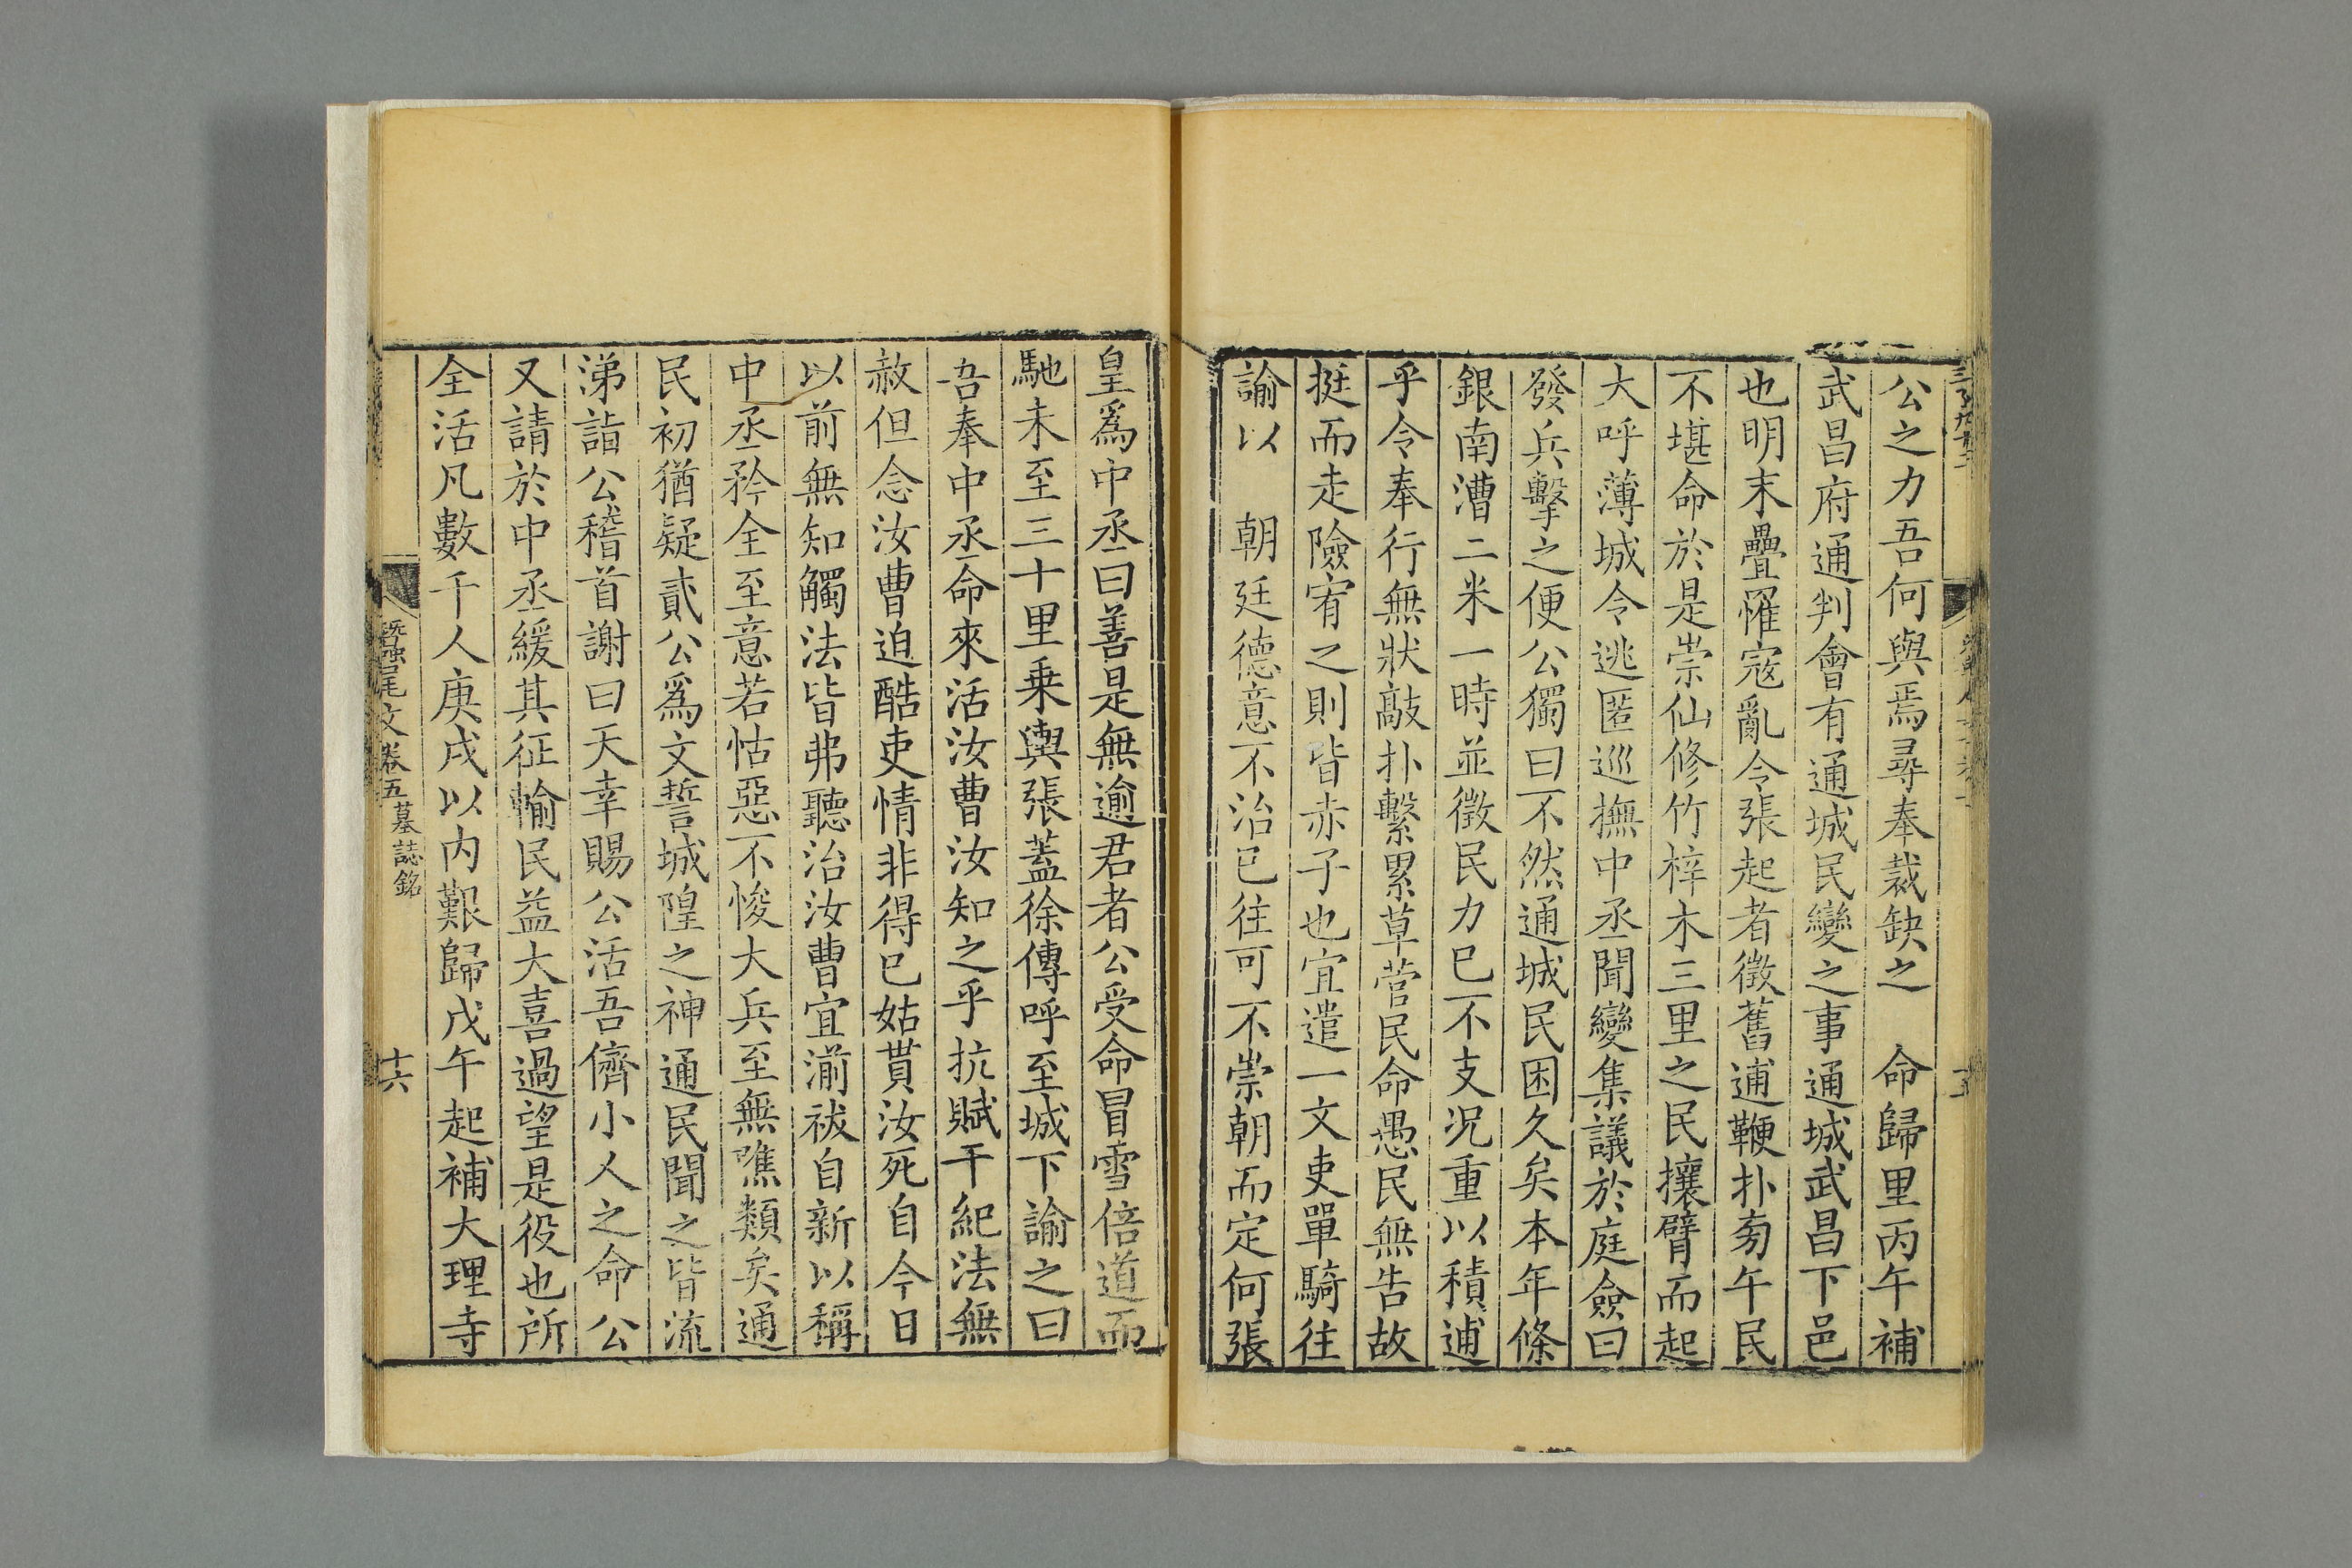 公之力吾何與焉尋奉裁缺之　命歸里丙午補
武昌府通判會有通城民變之事通城武昌下邑
也明末疊罹寇亂令張起者徵舊逋鞭扑旁午民
不堪命於是崇仙修竹梓木三里之民攘臂而起
大呼薄城令逃匿巡撫中丞聞變集議於庭僉曰
發兵擊之便公獨曰不然通城民困久矣本年條
銀南漕二米一時並徵民力已不支況重以積逋
乎令奉行無狀敲扑繫累草菅民命愚民無告故
挺而走險宥之則皆赤子也宜遣一文吏單騎往
諭以　朝廷德意不治已往可不崇朝而定何張
皇爲中丞曰善是無逾君者公受命冒雪倍道而
馳未至三十里乗輿張蓋徐傳呼至城下諭之曰
吾奉中丞命來活汝曹汝知之乎抗賦干紀法無
赦但念汝曹迫酷吏情非得已姑貰汝死自今日
以前無知觸法皆弗聽治汝曹宜湔祓自新以稱
中丞矜全至意若怙惡不悛大兵至無噍類矣通
民初猶疑貳公爲文誓城隍之神通民聞之皆流
涕詣公稽首謝曰天幸賜公活吾儕小人之命公
又請於中丞緩其征輸民益大喜過望是役也所
全活凡數千人庚戌以内艱歸戊午起補大理寺
蠶尾文卷五墓誌銘　十六